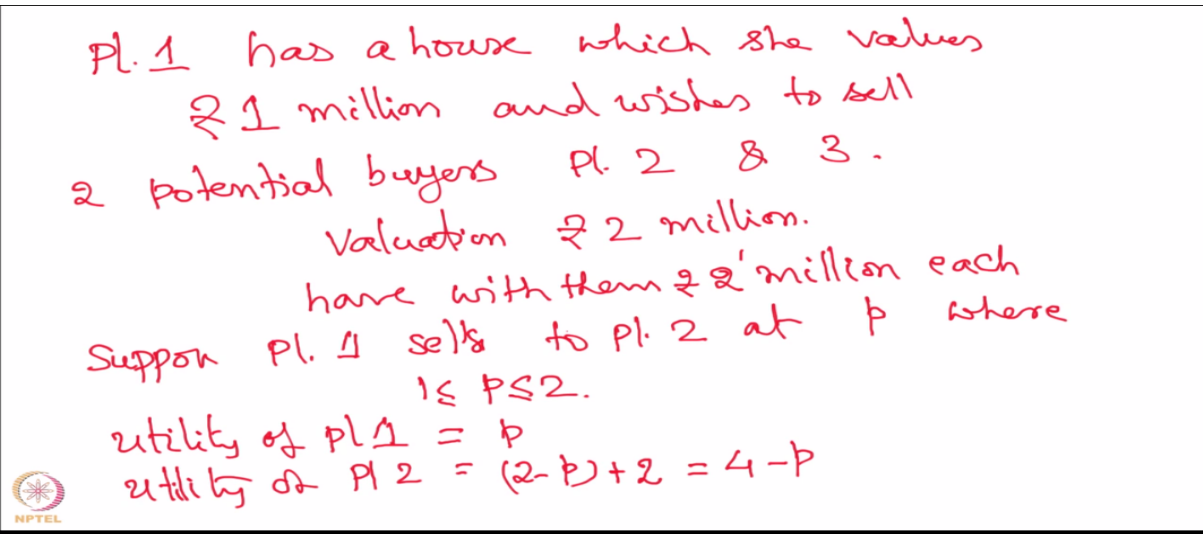 Pl. 1 has a house which she values
₹ 1 million and wishes to sell
2 potential buyers Pl. 2 & 3.
Valuation ₹ 2 million.
have with them ₹ 2 million each
Suppose Pl. 1 sells to pl. 2 at p where
1 ≤ p ≤ 2.
utility of pl 1 = p
utility of Pl 2 = (2-p)+2 = 4-p
NPTEL